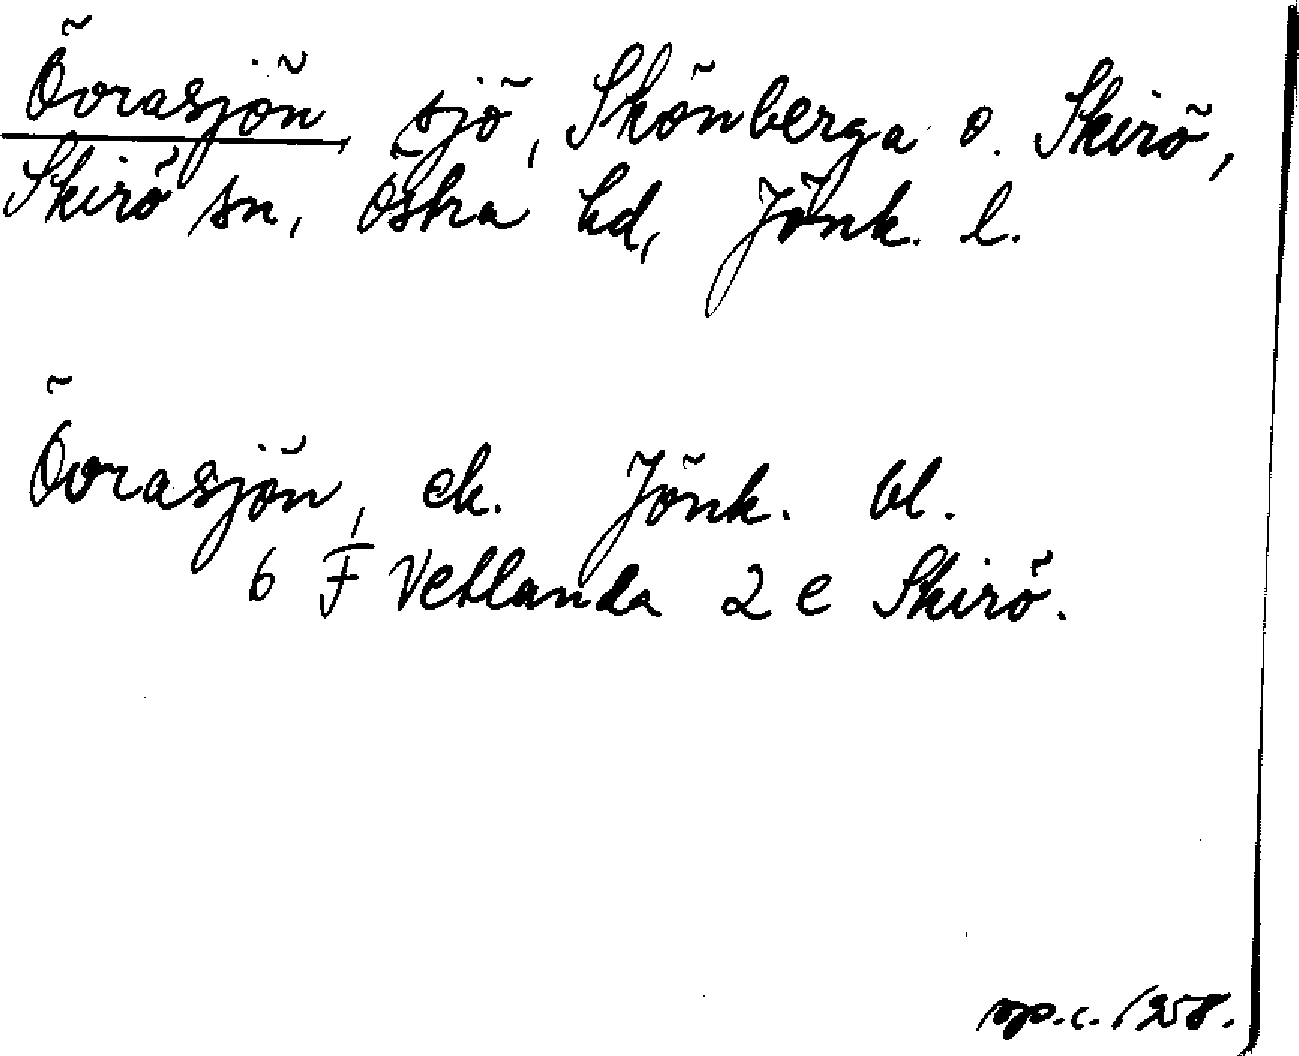 Övrasjön, sjö, Skönberga o. Skirö,
Skirö sn, Östra hd, Jönk. l.
Övrasjön, ek. Jönk. bl.
6 F Vetlanda 2 e Skirö.